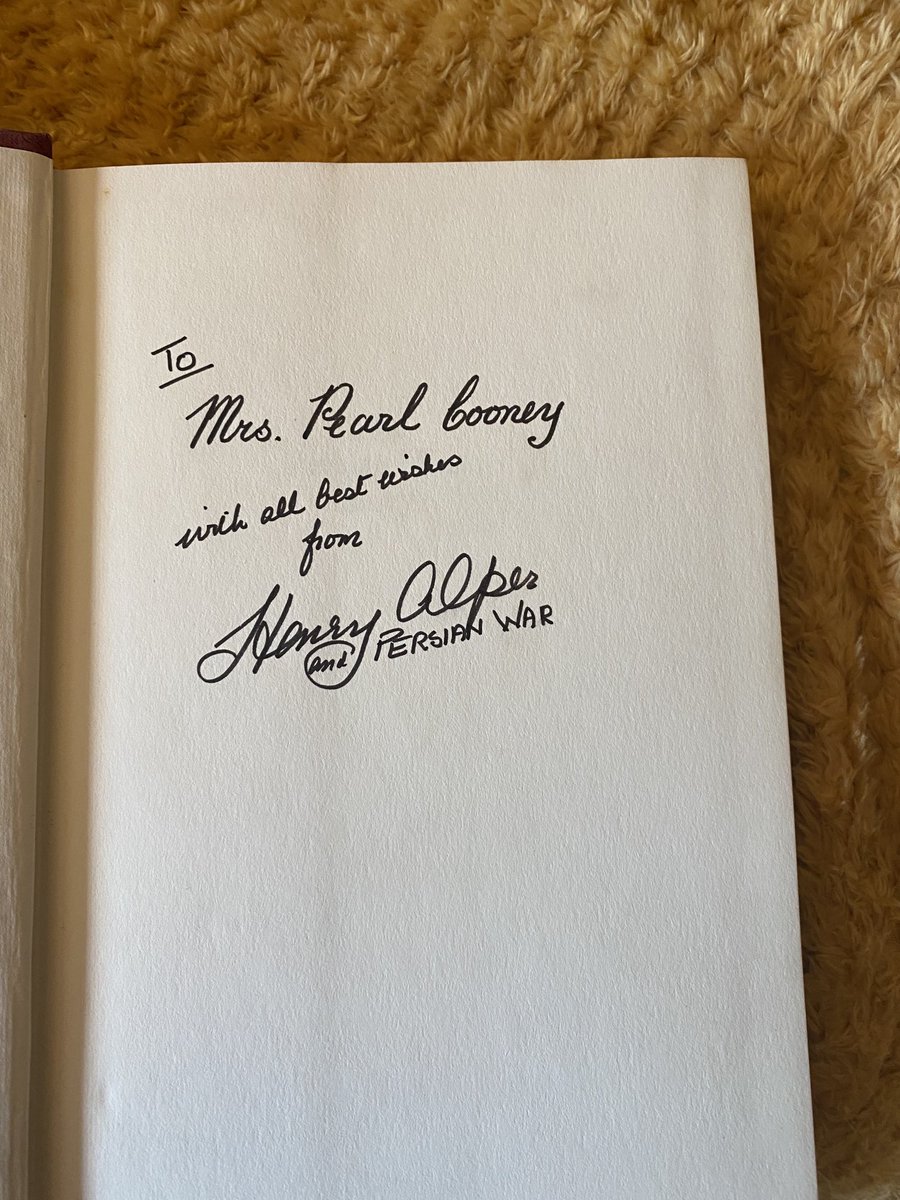 To
Mrs. Pearl Cooney
with all best wishes
from
Henry Alper
and PERSIAN WAR